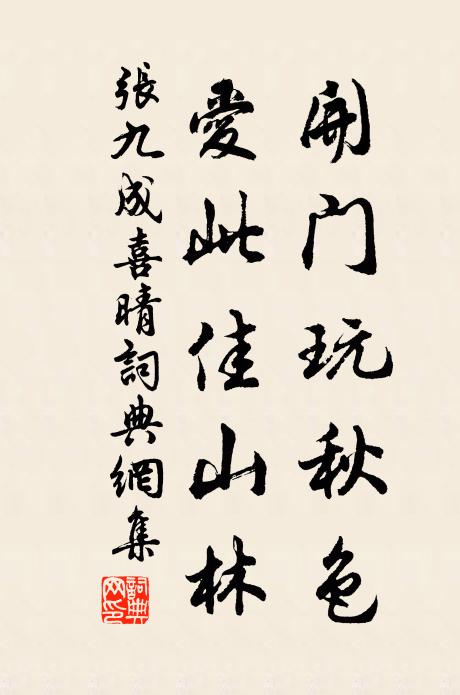 開門玩秋色
愛此佳山林
張九成喜晴詞典網集
詞典
网印